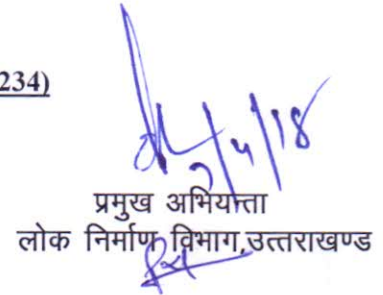 234)
7/4/18
प्रमुख अभियन्ता
लोक निर्माण विभाग,उत्तराखण्ड